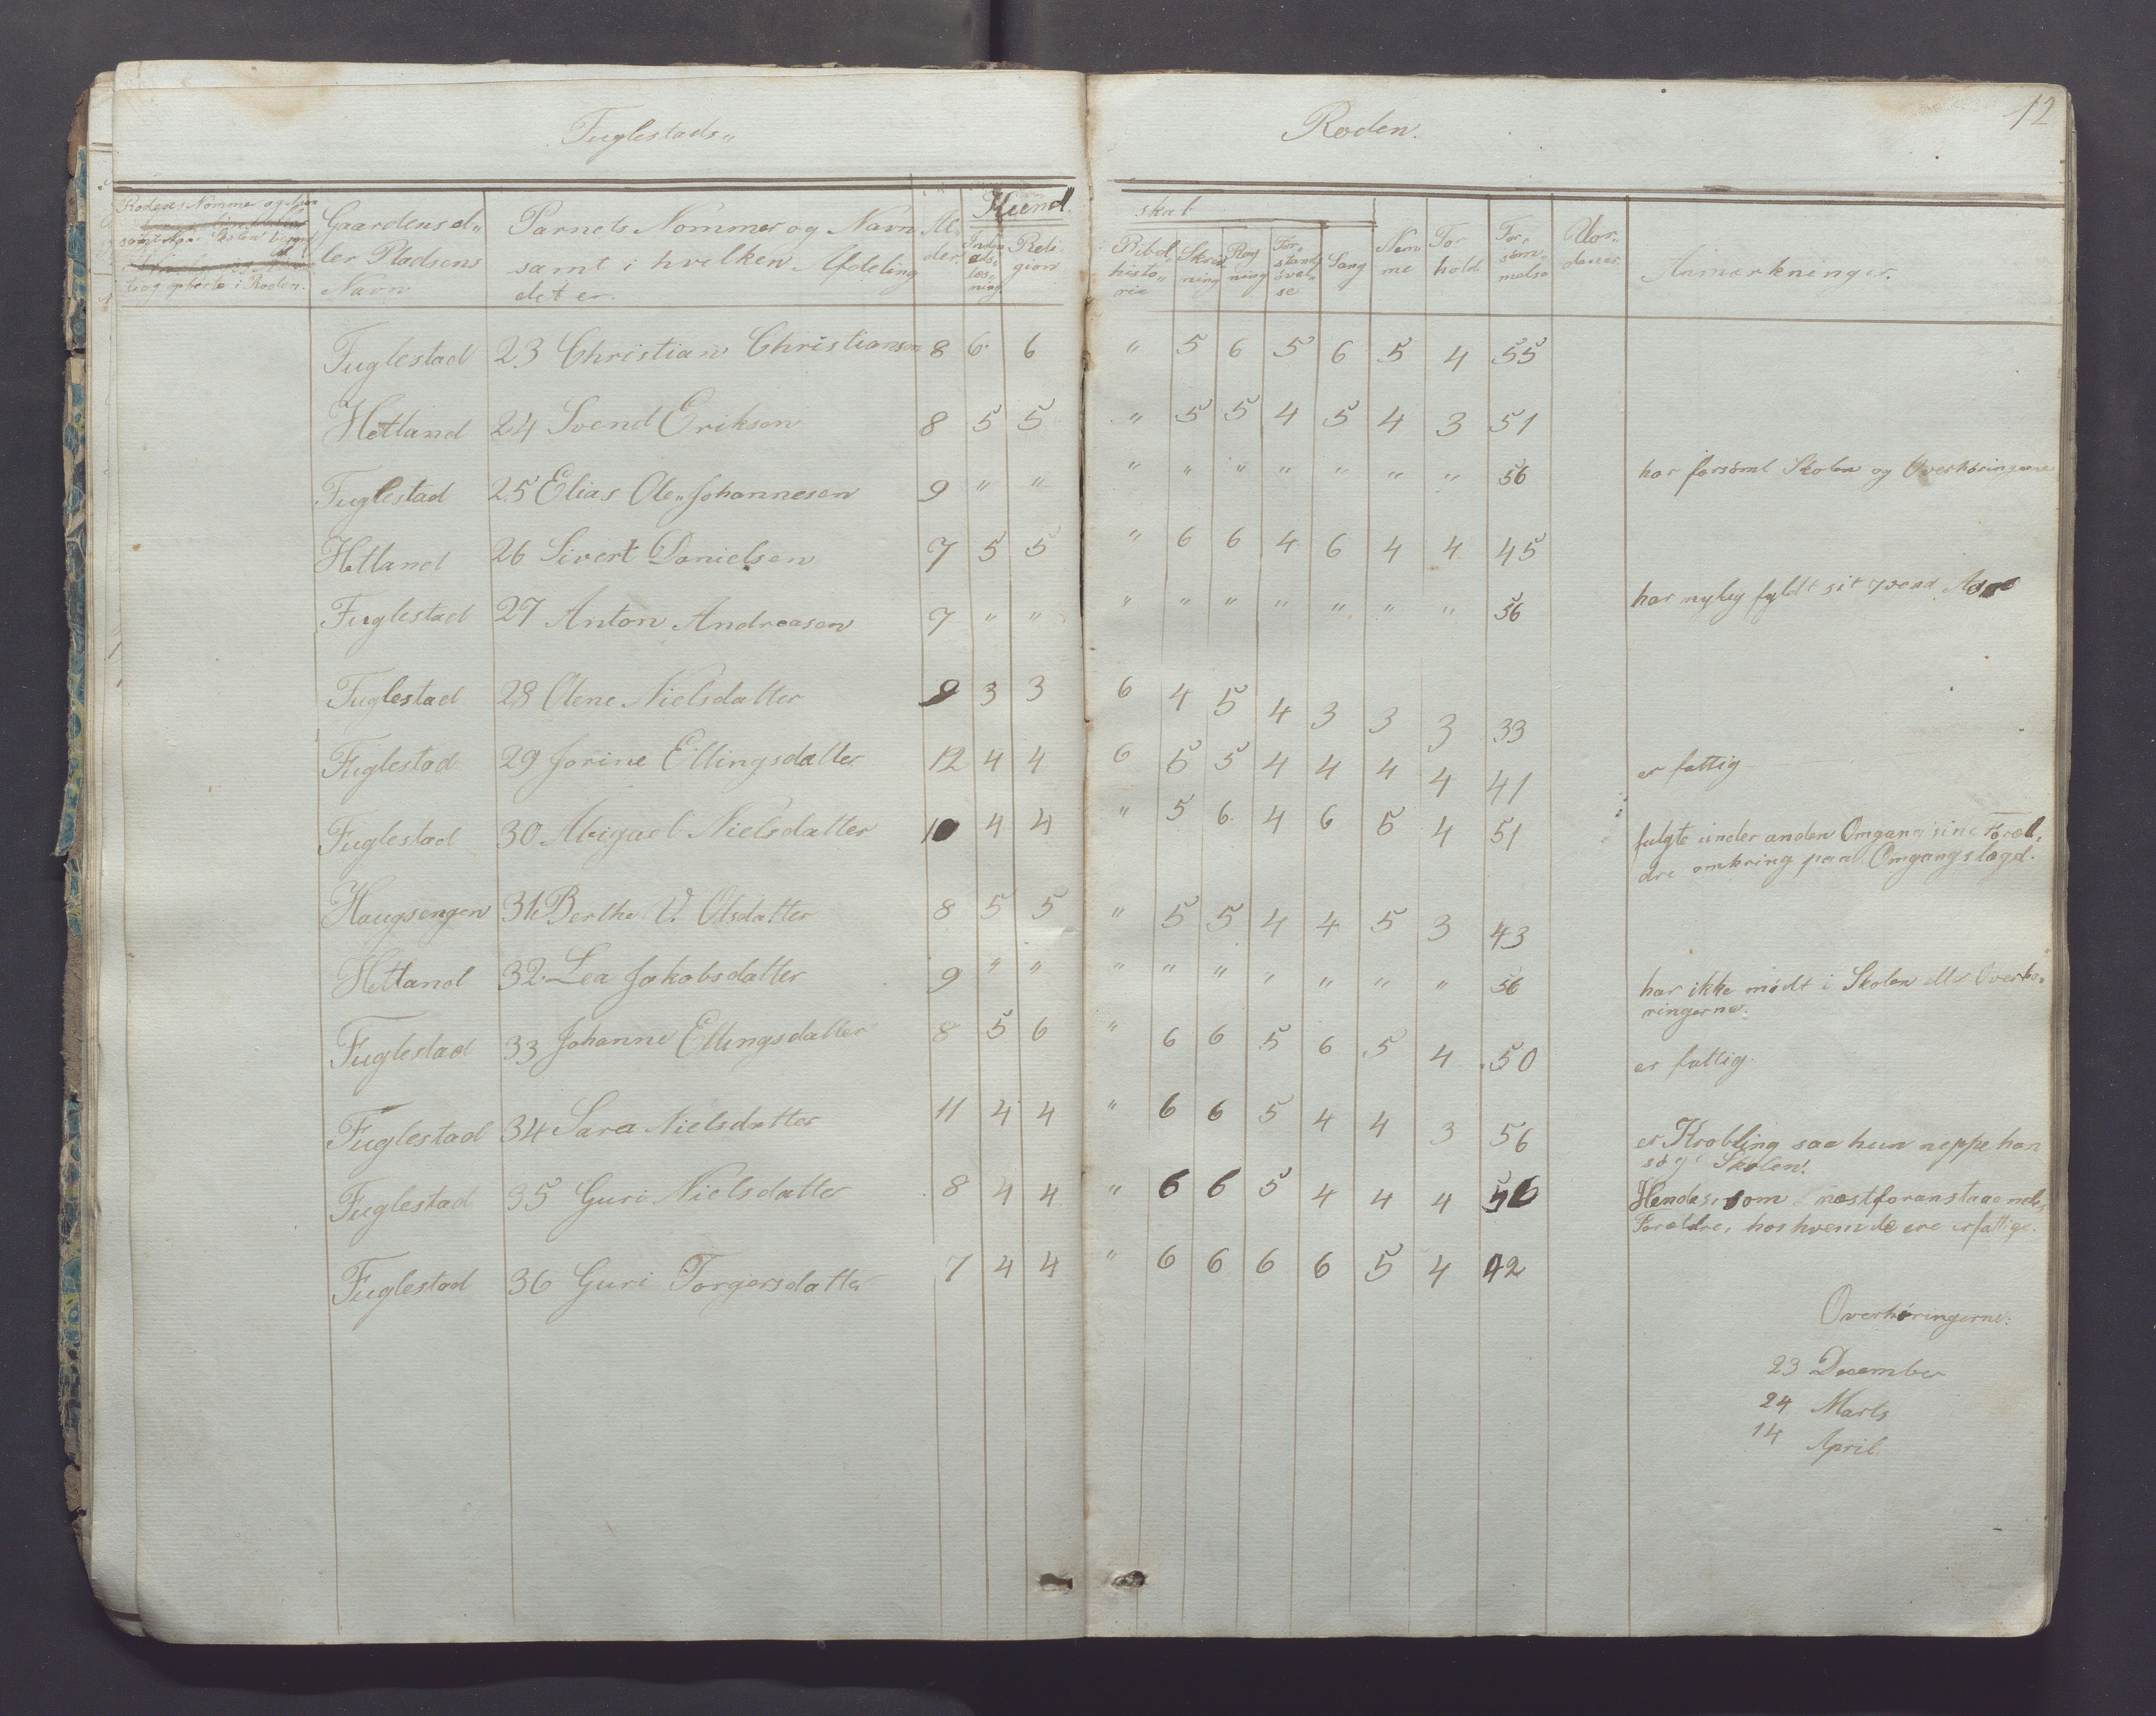 12
Fuglestads„ Roden.
Rodens Nommer og
Gaardens el„
ler Pladsens
Navn
Barnets Nommer og Navn
samt i hvilken Afdeling
det er.
Al„
der.
Kund„
skab
Inden„
ads„
læs„
ning
Reli„
gion
Bibel„
histo„
rie
Skriv„
ning
Reg„
ning
For„
stands„
øvel„
se
Sang
Nem
me
For
hold
For„
søm„
melse
Vor„
dener
Anmærkninger.
Fuglestad 23 Christian Christianson 8 6 6 „ 5 6 5 6 5 4 55
Hetland 24 Svend Erikson 8 5 5 „ 5 5 4 5 4 3 51
Fuglestad 25 Elias Ole„ Johannesen 9 „ „ „ „ „ „ „ „ „ 56 har forsømt Skolen og Overhøringerne
Hetland 26 Sivert Danielsen 7 5 5 „ 6 6 4 6 4 4 45
Fuglestad 27 Anton Andreasen 7 „ „ „ „ „ „ „ „ „ 56 har nylig fyldt sit 7vend
Fuglestad 28 Olene Nielsdatter 9 3 3 6 4 5 4 3 3 3 33
Fuglestad 29 Jorine Ellingsdatter 12 4 4 6 5 5 4 4 4 4 41 er fattig
Fuglestad 30 Abigael Nielsdatter 10 4 4 „ 5 6 4 6 5 4 51 fulgte under anden Omgang sine Foræl„
dre omkring paa Omgangslægd.
Haugsengen 31 Berthe V. Olsdatter 8 5 5 „ 5 5 4 4 5 3 43
Hetland 32 Lea Jakobsdatter 9 „ „ „ „ „ „ „ „ „ 56 har ikke mødt i Skolen eller Overhø„
ringerne.
Fuglestad 33 Johanne Ellingsdatter 8 5 6 „ 6 6 5 6 5 4 50 er fattig.
Fuglestad 34 Sara Nielsdatter 11 4 4 „ 6 6 5 4 4 3 56 er Krøbling saa hun neppe kan
søge Skolen.
Fuglestad 35 Guri Nielsdatter 8 4 4 „ 6 6 5 4 4 4 56 Hendes, som næstforanstaaendes
Forældre, hos hvem de ere er fattige.
Fuglestad 36 Guri Torgersdatter 7 4 4 „ 6 6 6 6 5 4 42
Overhøringerne:
23 December
24 Marts
14 April